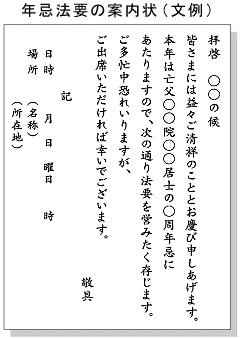 年忌法要の案内状(文例)
拝啓　〇〇の候
皆さまには益々ご清祥のこととお慶び申しあげます。
本年は亡父〇〇院〇〇居士の〇周年忌に
あたりますので、次の通り法要を営みたく存じます。
ご多忙中恐れいりますが、
ご出席いただければ幸いでございます。
敬具
記
日時　月　日　曜日　時
場所　(名称)
(所在地)